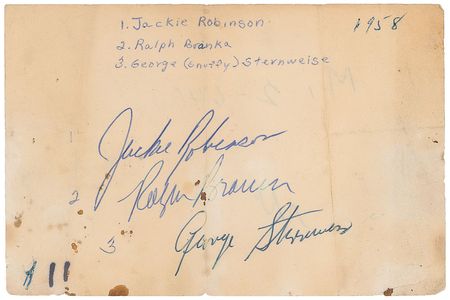 1. Jackie Robinson
$958
2. Ralph Branka
3. George (Snuffy) Sternweise
1
Jackie Robinson
2
Ralph Branca
3
George Sternweiss
$11